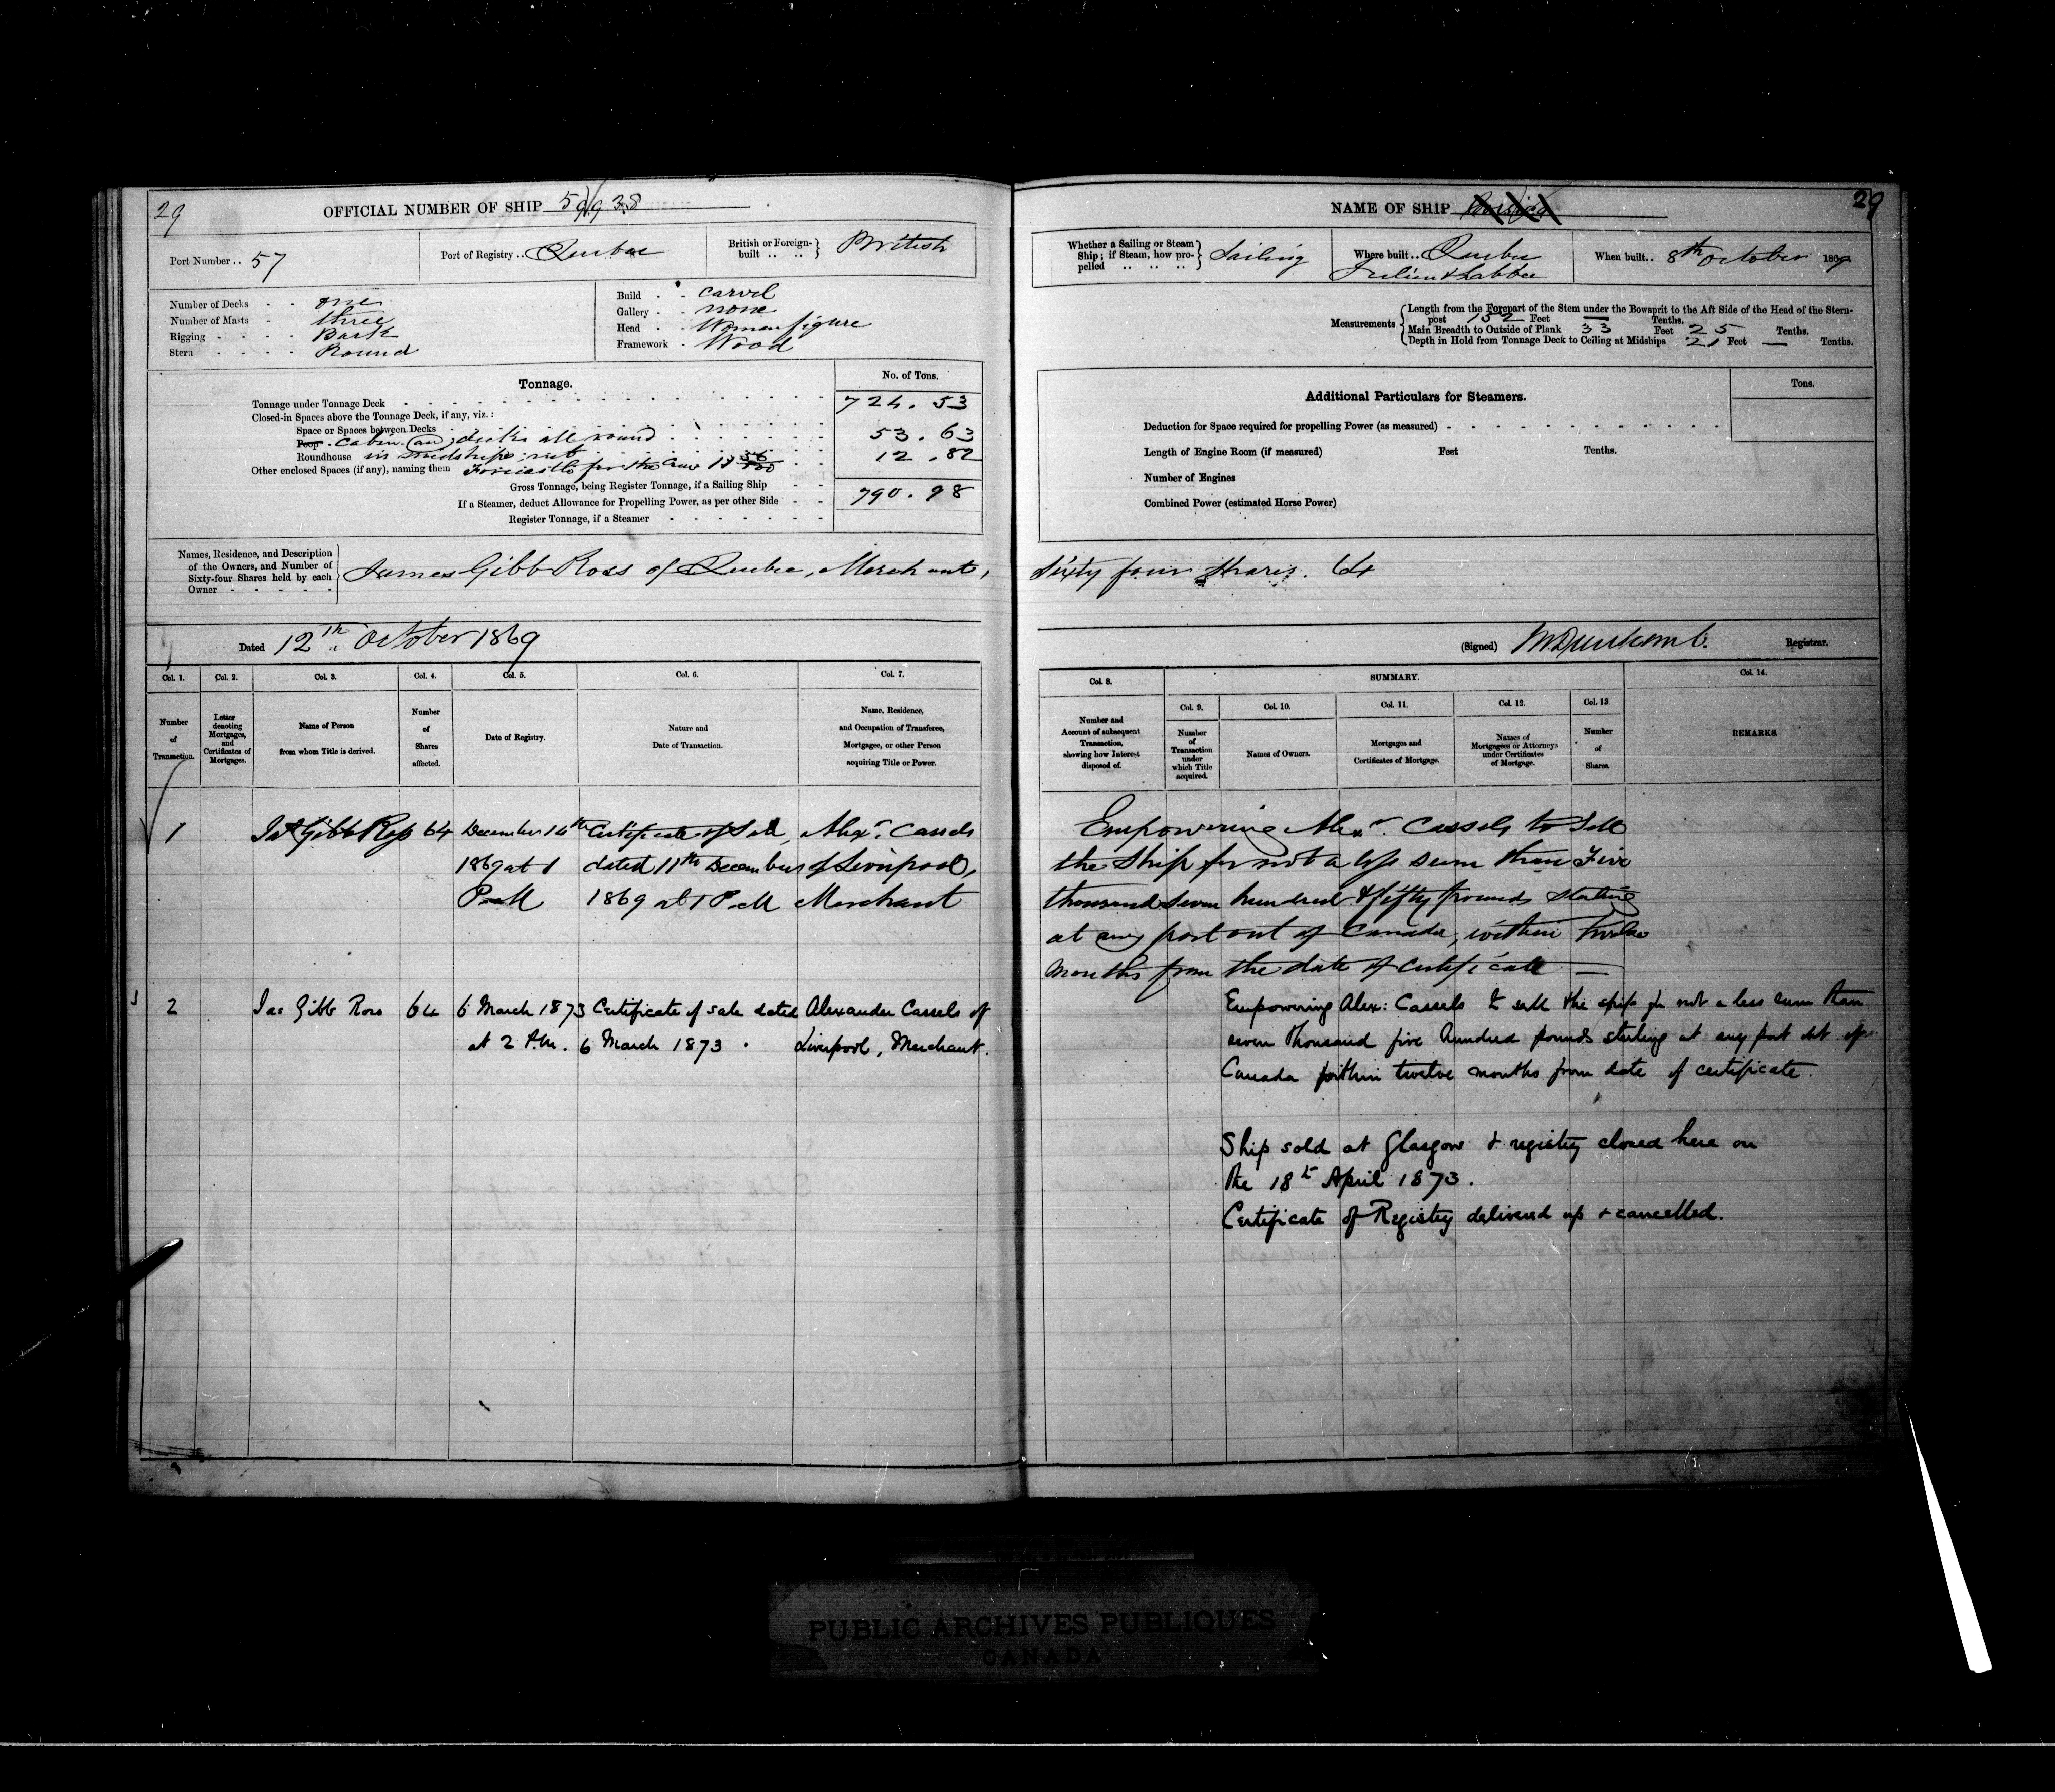 29
OFFICIAL NUMBER OF SHIP 59938
Port Number .. 57
Port of Registry .. Quebec
British or Foreign-built .. .. British
Number of Decks - - one
Number of Masts - three
Rigging - - - - Bark
Stern - - - - Round
Build - - Carvel
Gallery - - none
Head - - Woman figure
Framework - Wood
Tonnage.
No. of Tons.
Tonnage under Tonnage Deck 724.53
Closed-in Spaces above the Tonnage Deck, if any, viz.:
Space or Spaces between Decks
Poop. Cabin all round 53.63
Roundhouse in midships 12.82
Other enclosed Spaces (if any), naming them Forecastle for the Crew
Gross Tonnage, being Register Tonnage, if a Sailing Ship 790.98
If a Steamer, deduct Allowance for Propelling Power, as per other Side
Register Tonnage, if a Steamer
Names, Residence, and Description
of the Owners, and Number of
Sixty-four Shares held by each
Owner
James Gibb Ross of Quebec, Merchant,
Dated 12th October 1869
Col. 1. Col. 2. Col. 3. Col. 4. Col. 5. Col. 6. Col. 7.
Number of Transaction.
Letter denoting Mortgages, and Certificates of Mortgages.
Name of Person from whom Title is derived.
Number of Shares affected.
Date of Registry.
Nature and Date of Transaction.
Name, Residence, and Occupation of Transferee, Mortgagee, or other Person acquiring Title or Power.
1 Jas Gibb Ross 64 December 14th Certificate of Sale, Alexr. Cassels
1869 at 1 dated 11th December of Liverpool,
P.M 1869 at 1 P.M Merchant
2 Jas Gibb Ross 64 6 March 1873 Certificate of sale dated Alexander Cassels of
at 2 P.M. 6 March 1873 . Liverpool, Merchant.
NAME OF SHIP
29
Whether a Sailing or Steam Ship; if Steam, how propelled .. .. .. Sailing
Where built .. Quebec
When built .. 8th October 1869
Measurements
Length from the Forepart of the Stem under the Bowsprit to the Aft Side of the Head of the Stern-
post 152 Feet — Tenths.
Main Breadth to Outside of Plank 33 Feet 25 Tenths.
Depth in Hold from Tonnage Deck to Ceiling at Midships 21 Feet — Tenths.
Additional Particulars for Steamers.
Tons.
Deduction for Space required for propelling Power (as measured)
Length of Engine Room (if measured) Feet Tenths.
Number of Engines
Combined Power (estimated Horse Power)
Sixty four Shares. 64
(Signed) Registrar.
Col. 8. SUMMARY. Col. 14.
Col. 9. Col. 10. Col. 11. Col. 12. Col. 13
Number and Account of subsequent Transaction, showing how Interest disposed of.
Number of Transaction under which Title acquired.
Names of Owners.
Mortgages and Certificates of Mortgage.
Names of Mortgagees or Attorneys under Certificates of Mortgage.
Number of Shares.
REMARKS.
Empowering Alexr. Cassels to Sell
the Ship for not a less sum than Five
thousand Seven hundred & fifty pounds Sterling
at any port out of Canada, within twelve
months from the date of Certificate —
Empowering Alex: Cassels to sell the ship for not a less sum than
seven thousand five hundred pounds sterling at any port out of
Canada within twelve months from date of certificate.
Ship sold at Glasgow & registry closed here on
the 18th April 1873.
Certificate of Registry delivered up & cancelled.
PUBLIC ARCHIVES PUBLIQUES
CANADA